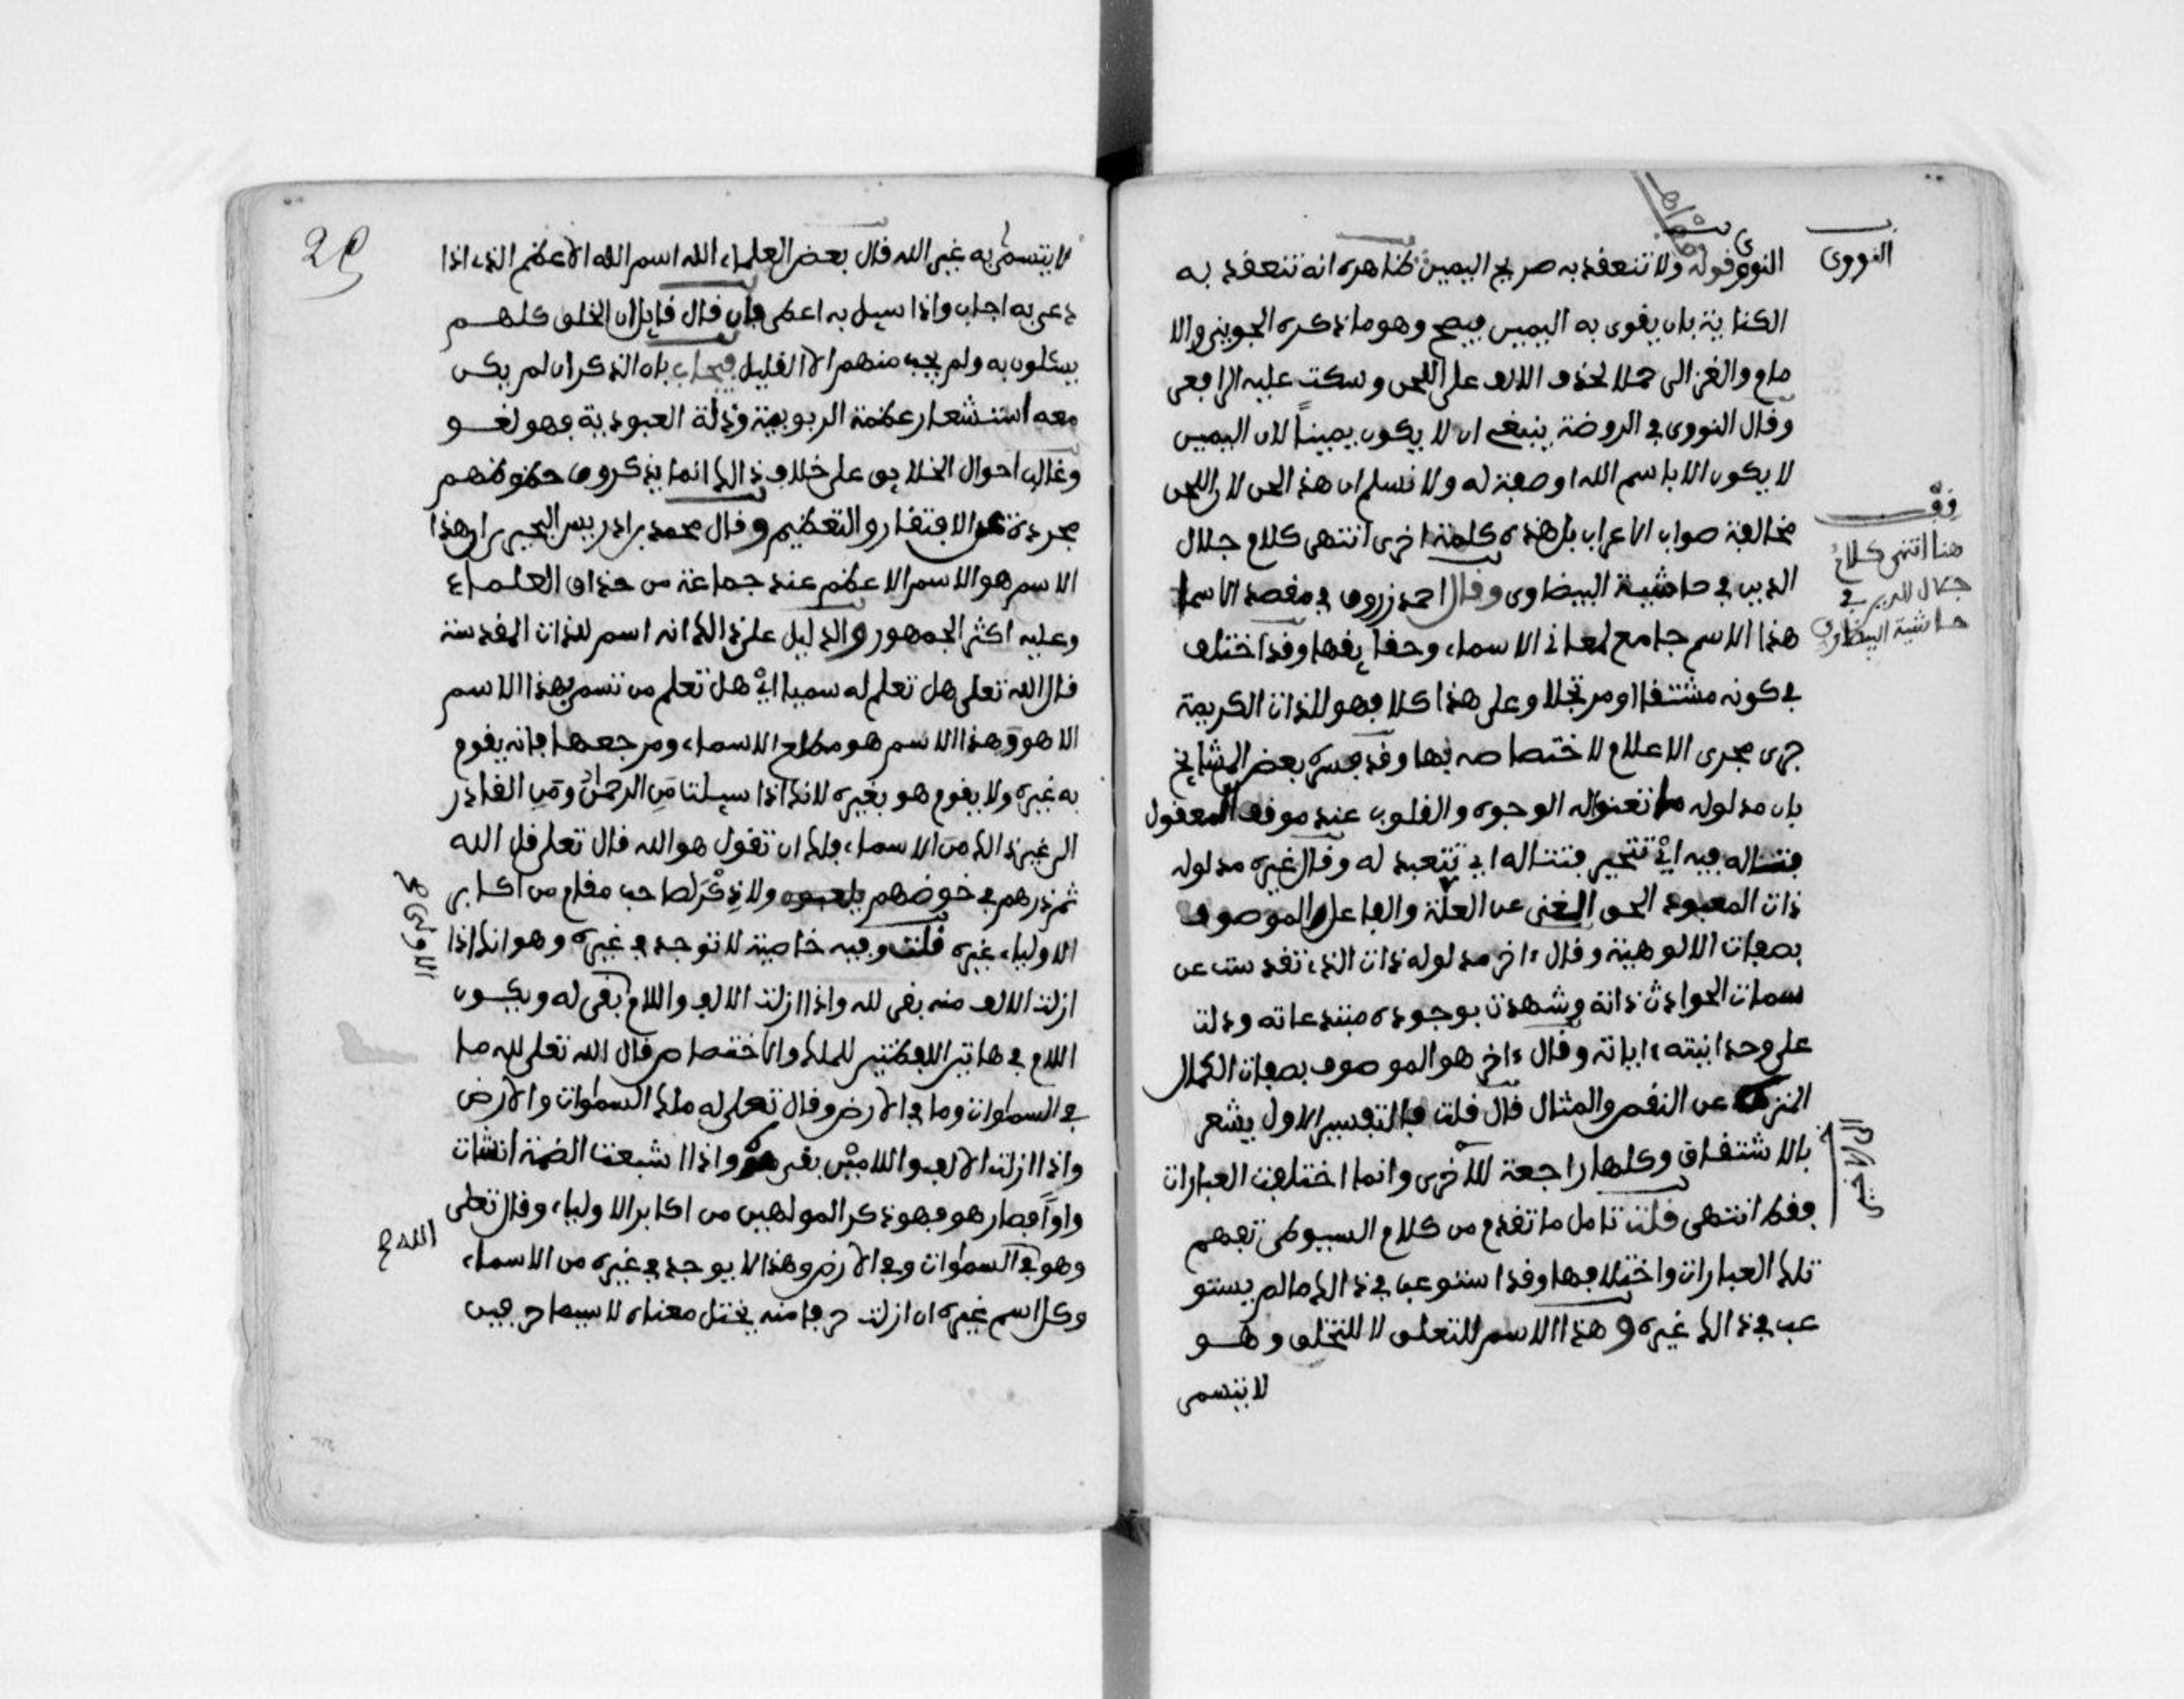 النووي
النووي قوله ولا تنعقد به صريح اليمين ظاهره انه تنعقد به
الكناية بان ينوى به اليمين فيصح وهو ما ذكره الجويني والا
مام والغزالى حملا لحذف الالف على اللحن وسكت عليه الرافعى
وقال النووى في الروضة ينبغى ان لا يكون يمينا لان اليمين
لا يكون الا باسم الله او صفة له ولا نسلم ان هذا لحن لان اللحن
مخالفة صواب الاعراب بل هذه كلمة اخرى انتهى كلام جلال
الدين في حاشية البيضاوى وقال احمد زروق في مقصد الاسما
هذا الاسم جامع لمعانى الاسماء وحقايقها وقد اختلف
في كونه مشتقا او مرتجلا وعلى هذا كلا فهو للذات الكريمة
جرى مجرى الاعلام لاختصاصه بها وقد فسره بعض المشايخ
بان مدلوله ما تعنوا له الوجوه والقلوب عند موقف العقول
فتتاله فيه اي تتحير فتتاله اي تتعبد له وقال غيره مدلوله
ذات المعبود الحق الغنى عن العلة والفاعل الموصوف
بصفات الالوهية وقال ءاخر مدلوله ذات الذي تقدست عن
سمات الحوادث ذاته وشهدت بوجوده مبتدعاته ودلت
على وحدانيته ءاياته وقال ءاخر هو الموصوف بصفات الكمال
المنزه عن النقص والمثال قال قلت فالتفسير الاول يشعر
بالاشتقاق وكلها راجعة للاخرى وانما اختلفت العبارات
فقط انتهى قلت تامل ما تقدم من كلام السيوطى تفهم
تلك العبارات واختلافها وقد استوعب في ذالك ما لم يستو
عب في ذالك غيره وهذا الاسم للتعلق لا للتخلق وهو
لا يتسمى
قف
هنا انتهى كلام
جلال الدين في
حاشية البيضاوي
لا يتسمى به غير الله قال بعض العلماء الله اسم الله الاعظم الذي اذا
دعى به اجاب واذا سيل به اعطى فان قال قايل ان الخلق كلهم
يسئلون به ولم يجب منهم الا القليل فيجاب بان الذكر ان لم يكن
معه استشعار عظمة الربوبية وذلة العبودية فهو لغو
وغالب احوال الخلايق على خلاف ذالك انما يذكرون حظوظهم
مجردة عن الافتقار والتعظيم وقال محمد بن ادريس البجيرى ان هذا
الاسم هو الاسم الاعظم عند جماعة من حذاق العلماء
وعليه اكثر الجمهور والدليل على ذالك انه اسم للذات المقدسة
قال الله تعلى هل تعلم له سميا اي هل تعلم من تسمى بهذا الاسم
الا هو وهذا الاسم هو مطلع الاسماء ومرجعها فانه يقوم
به غيره ولا يقوم هو بغيره لانك اذا سيلت من الرحمن ومن القادر
الى غير ذالك من الاسماء فلك ان تقول هو الله قال تعلى قل الله
ثم ذرهم في خوضهم يلعبون ولا ذكر لصاحب مقام من اكابر
الاولياء غيره قلت وفيه خاصية لا توجد في غيره وهو انك اذا
ازلت الالف منه بقى لله واذا ازلت الالف واللام بقى له ويكون
اللام في هاتين اللفظتين للملك والاختصاص قال الله تعلى لله ما
في السموات وما في الارض وقال تعلى له ملك السموات والارض
واذا ازلت الالف واللامين بقى هو واذا اشبعت الضمة انشات
واوا فصار هو فهو ذكر المولهين من اكابر الاولياء وقال تعلى
وهو في السموات وفي الارض وهذا لا يوجد في غيره من الاسماء
وكل اسم غيره ان ازلت حرفا منه يختل معناه لا سيما حرفين
الاولى
الله